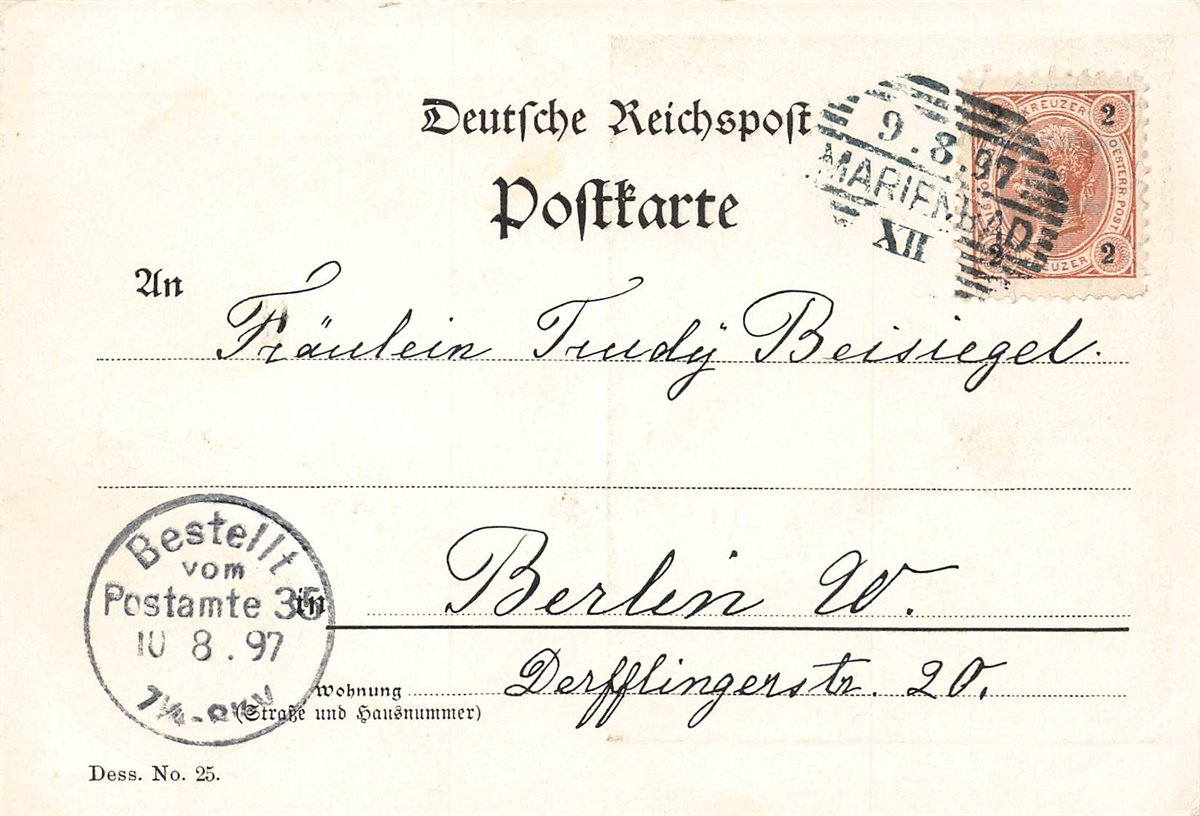 Deutsche Reichspost
Postkarte
9.8.97
MARIENBAD
XII
KREUZER
2
OESTERR. POST
2
2
KREUZER
An
Fräulein Trudÿ Beisiegel.
Bestellt
vom
Postamte 35
10 8.97
in
Berlin W.
Wohnung
(Straße und Hausnummer)
Derfflingerstr. 20.
Dess. No. 25.